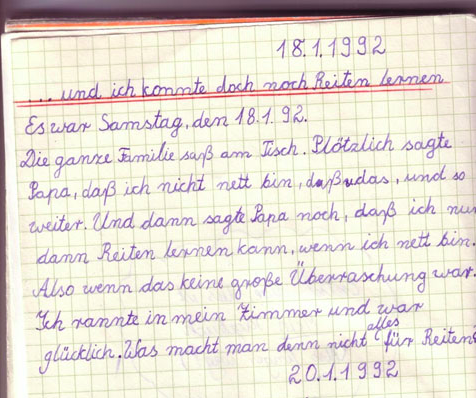 18.1.1992
... und ich konnte doch noch Reiten lernen
Es war Samstag, den 18.1.92.
Die ganze Familie saß am Tisch. Plötzlich sagte
Papa, daß ich nicht nett bin, daß das, und so
weiter. Und dann sagte Papa noch, daß ich nur
dann Reiten lernen kann, wenn ich nett bin.
Also wenn das keine große Überraschung war.
Ich rannte in mein Zimmer und war
glücklich. Was macht man denn nicht alles für Reiten?
20.1.1992